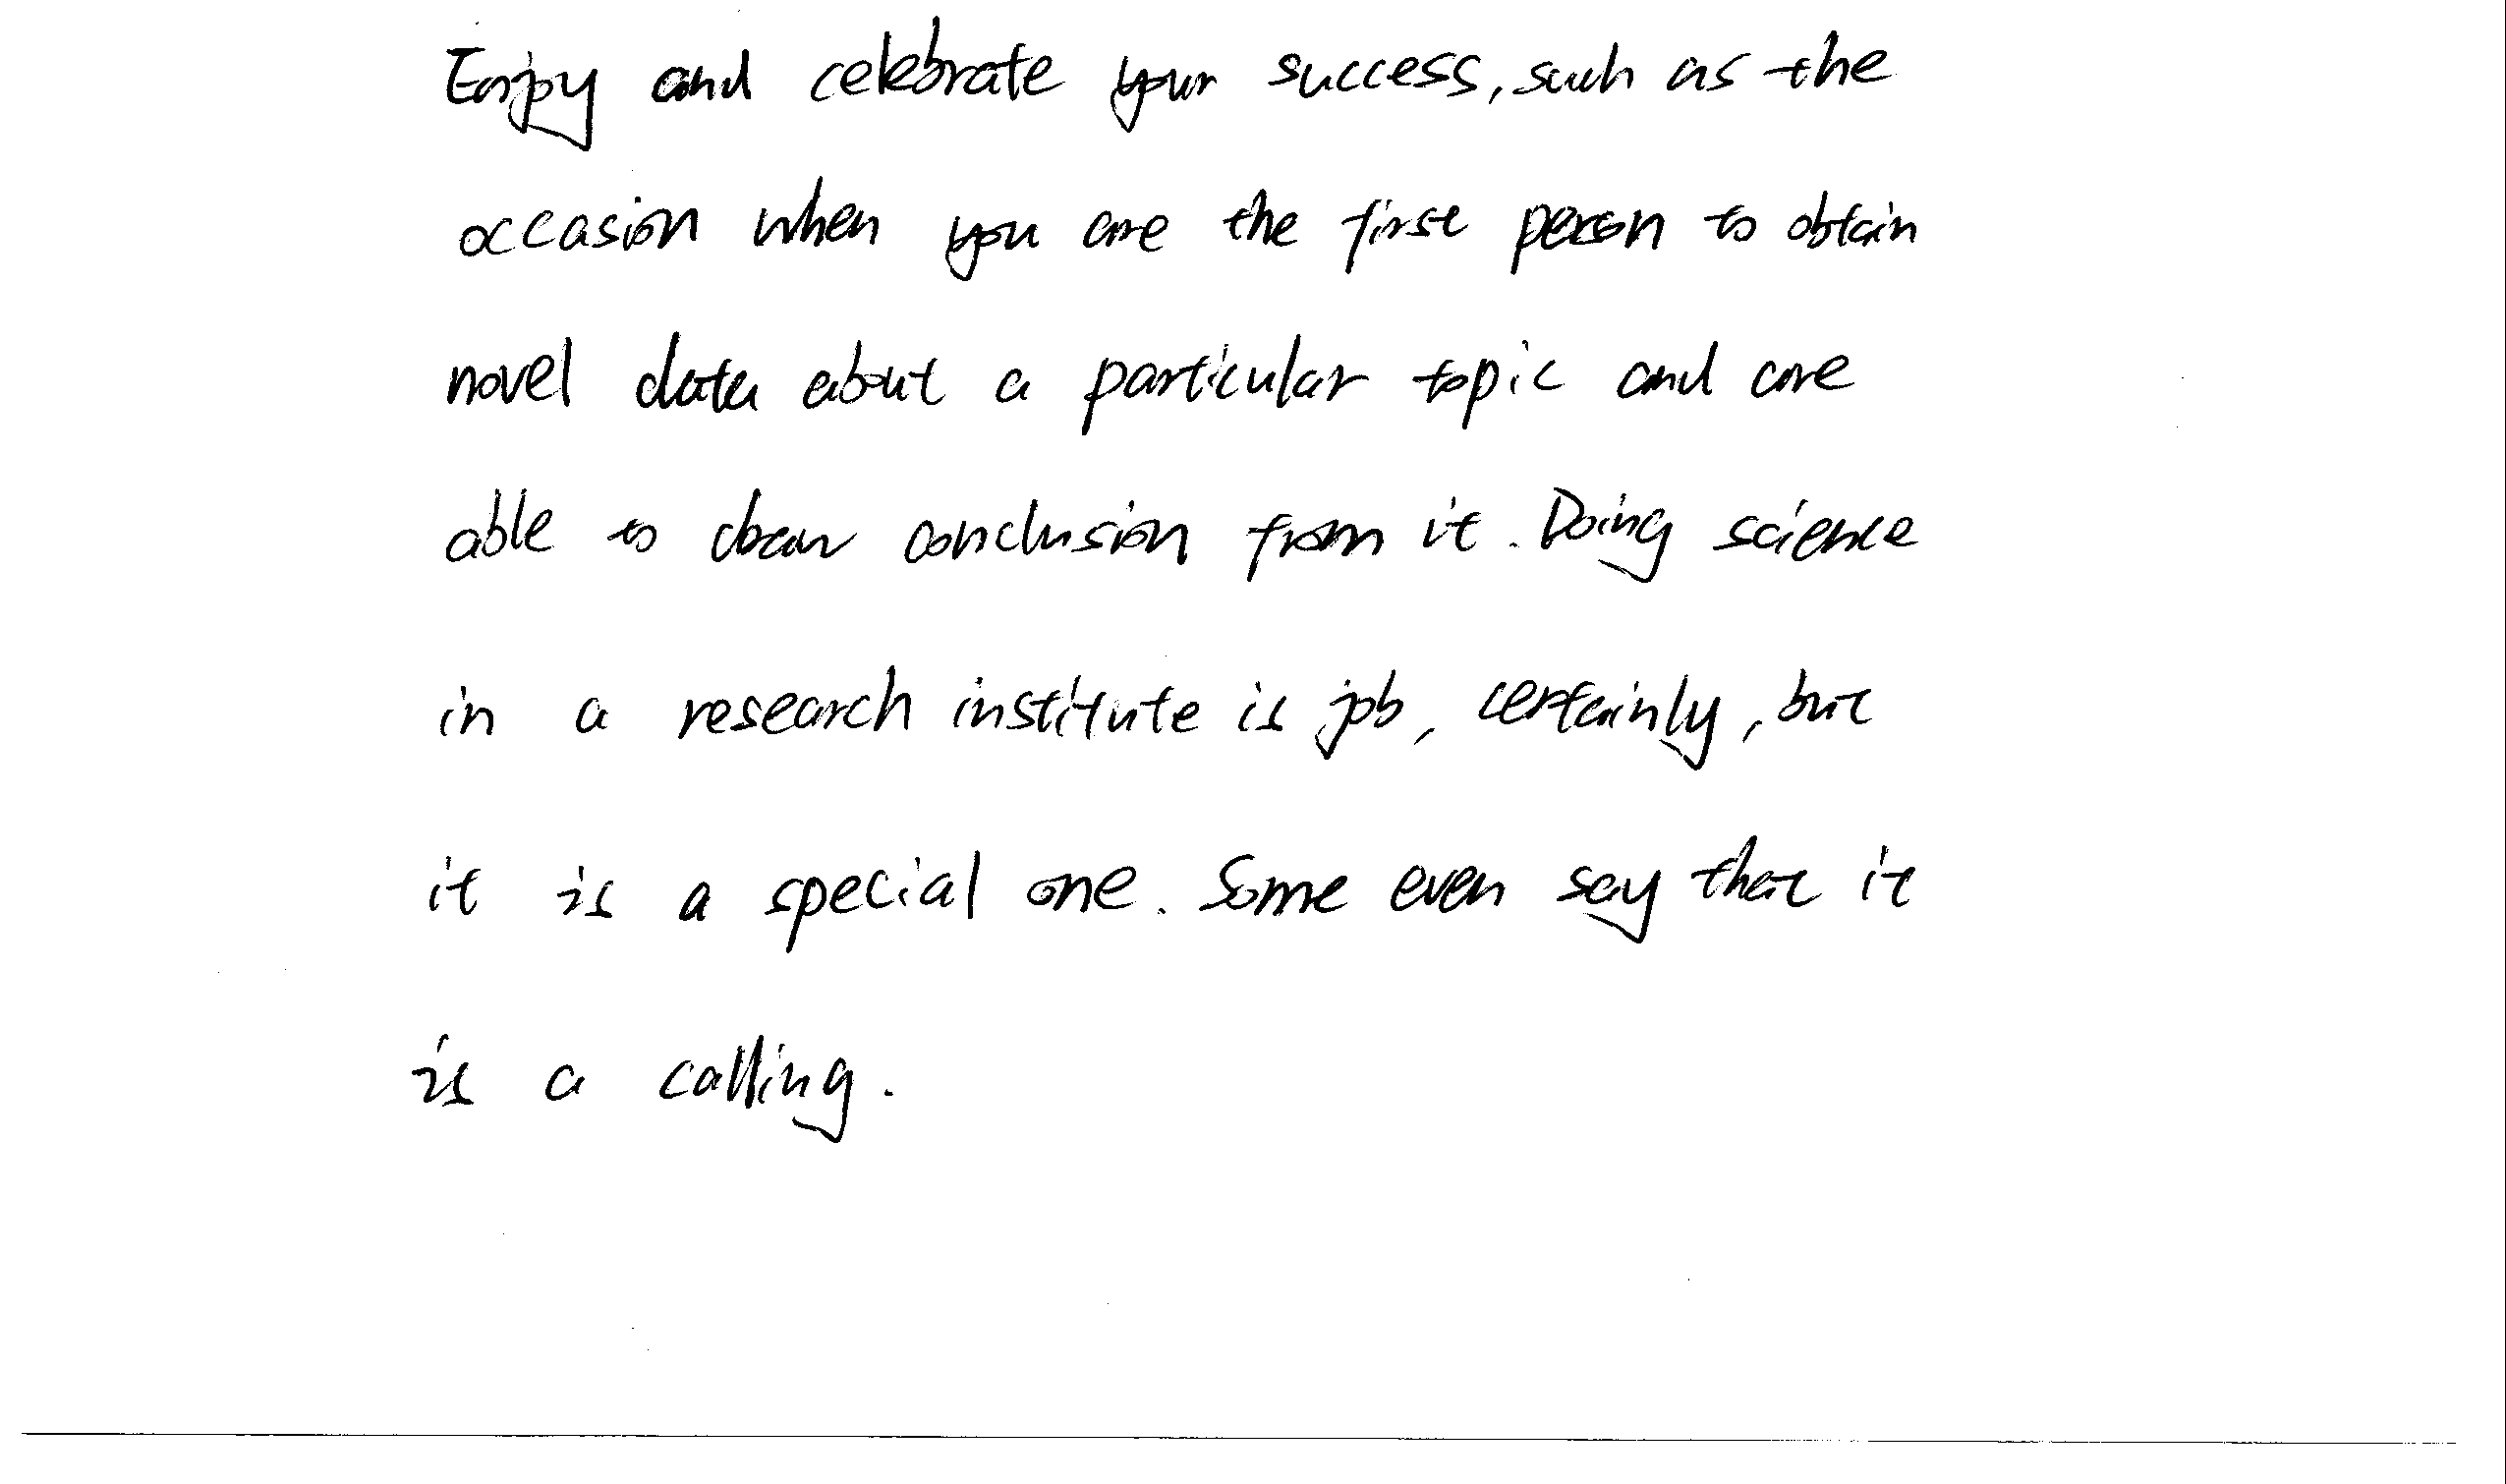 Enjoy and celebrate your success, such as the
occasion when you are the first person to obtain
novel data about a particular topic and are
able to draw conclusion from it. Doing science
in a research institute is job, certainly, but
it is a special one. Some even say that it
is a calling.